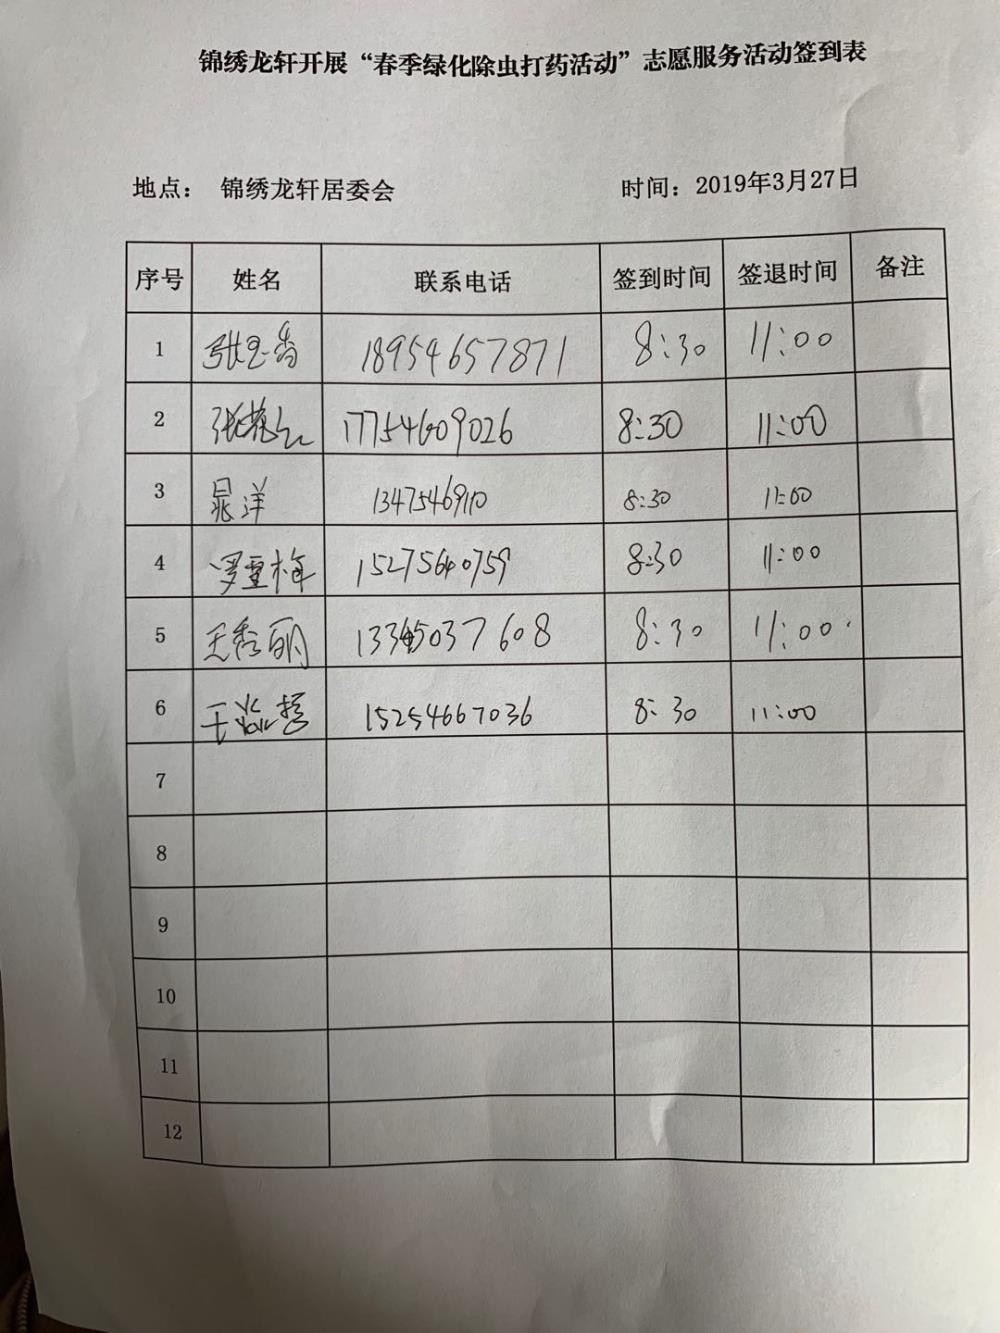 锦绣龙轩开展“春季绿化除虫打药活动”志愿服务活动签到表
地点： 锦绣龙轩居委会 时间：2019年3月27日
序号 姓名 联系电话 签到时间 签退时间 备注
1 张玉香 18954657871 8:30 11:00
2 17754609026 8:30 11:00
3 晁洋 13475469110 8:30 11:00
4 罗雪梅 15275640759 8:30 11:00
5 王秀丽 8:30 11:00
6 15254667036 8:30 11:00
7
8
9
10
11
12